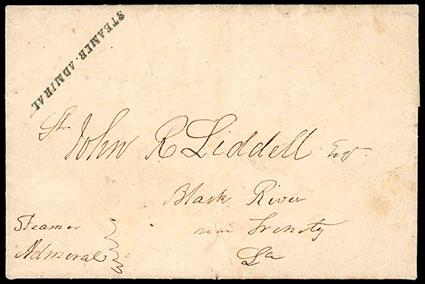 STEAMER·ADMIRAL
St. John R Liddell Esq
Black River
near Trinity
La
Steamer
Admiral